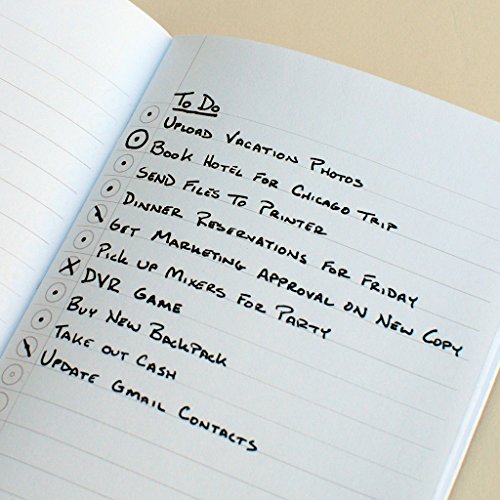 To Do
Upload Vacation Photos
Book Hotel For Chicago Trip
Send Files To Printer
Dinner Reservations for Friday
Get Marketing Approval on New Copy
Pick up Mixers For Party
DVR Game
Buy New Backpack
Take out Cash
Update Gmail Contacts